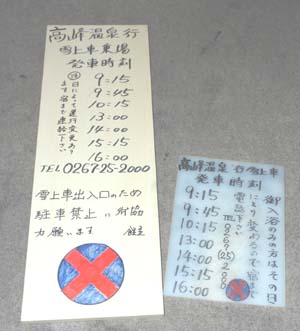 高峰温泉行
雪上車乗場
発車時刻
9:15
9:45
10:15
13:00
14:00
15:15
16:00
㊟日によって運行変更あり
ます宿まで連絡下さい
TEL026725-2000
雪上車出入口のため
駐車禁止に御協
力願います
高峰温泉行雪上車
発車時刻
9:15
9:45
10:15
13:00
14:00
15:15
16:00
御入浴のみの方はその日
により変わるので宿まで
電話下さい
TEL0267(25)2000